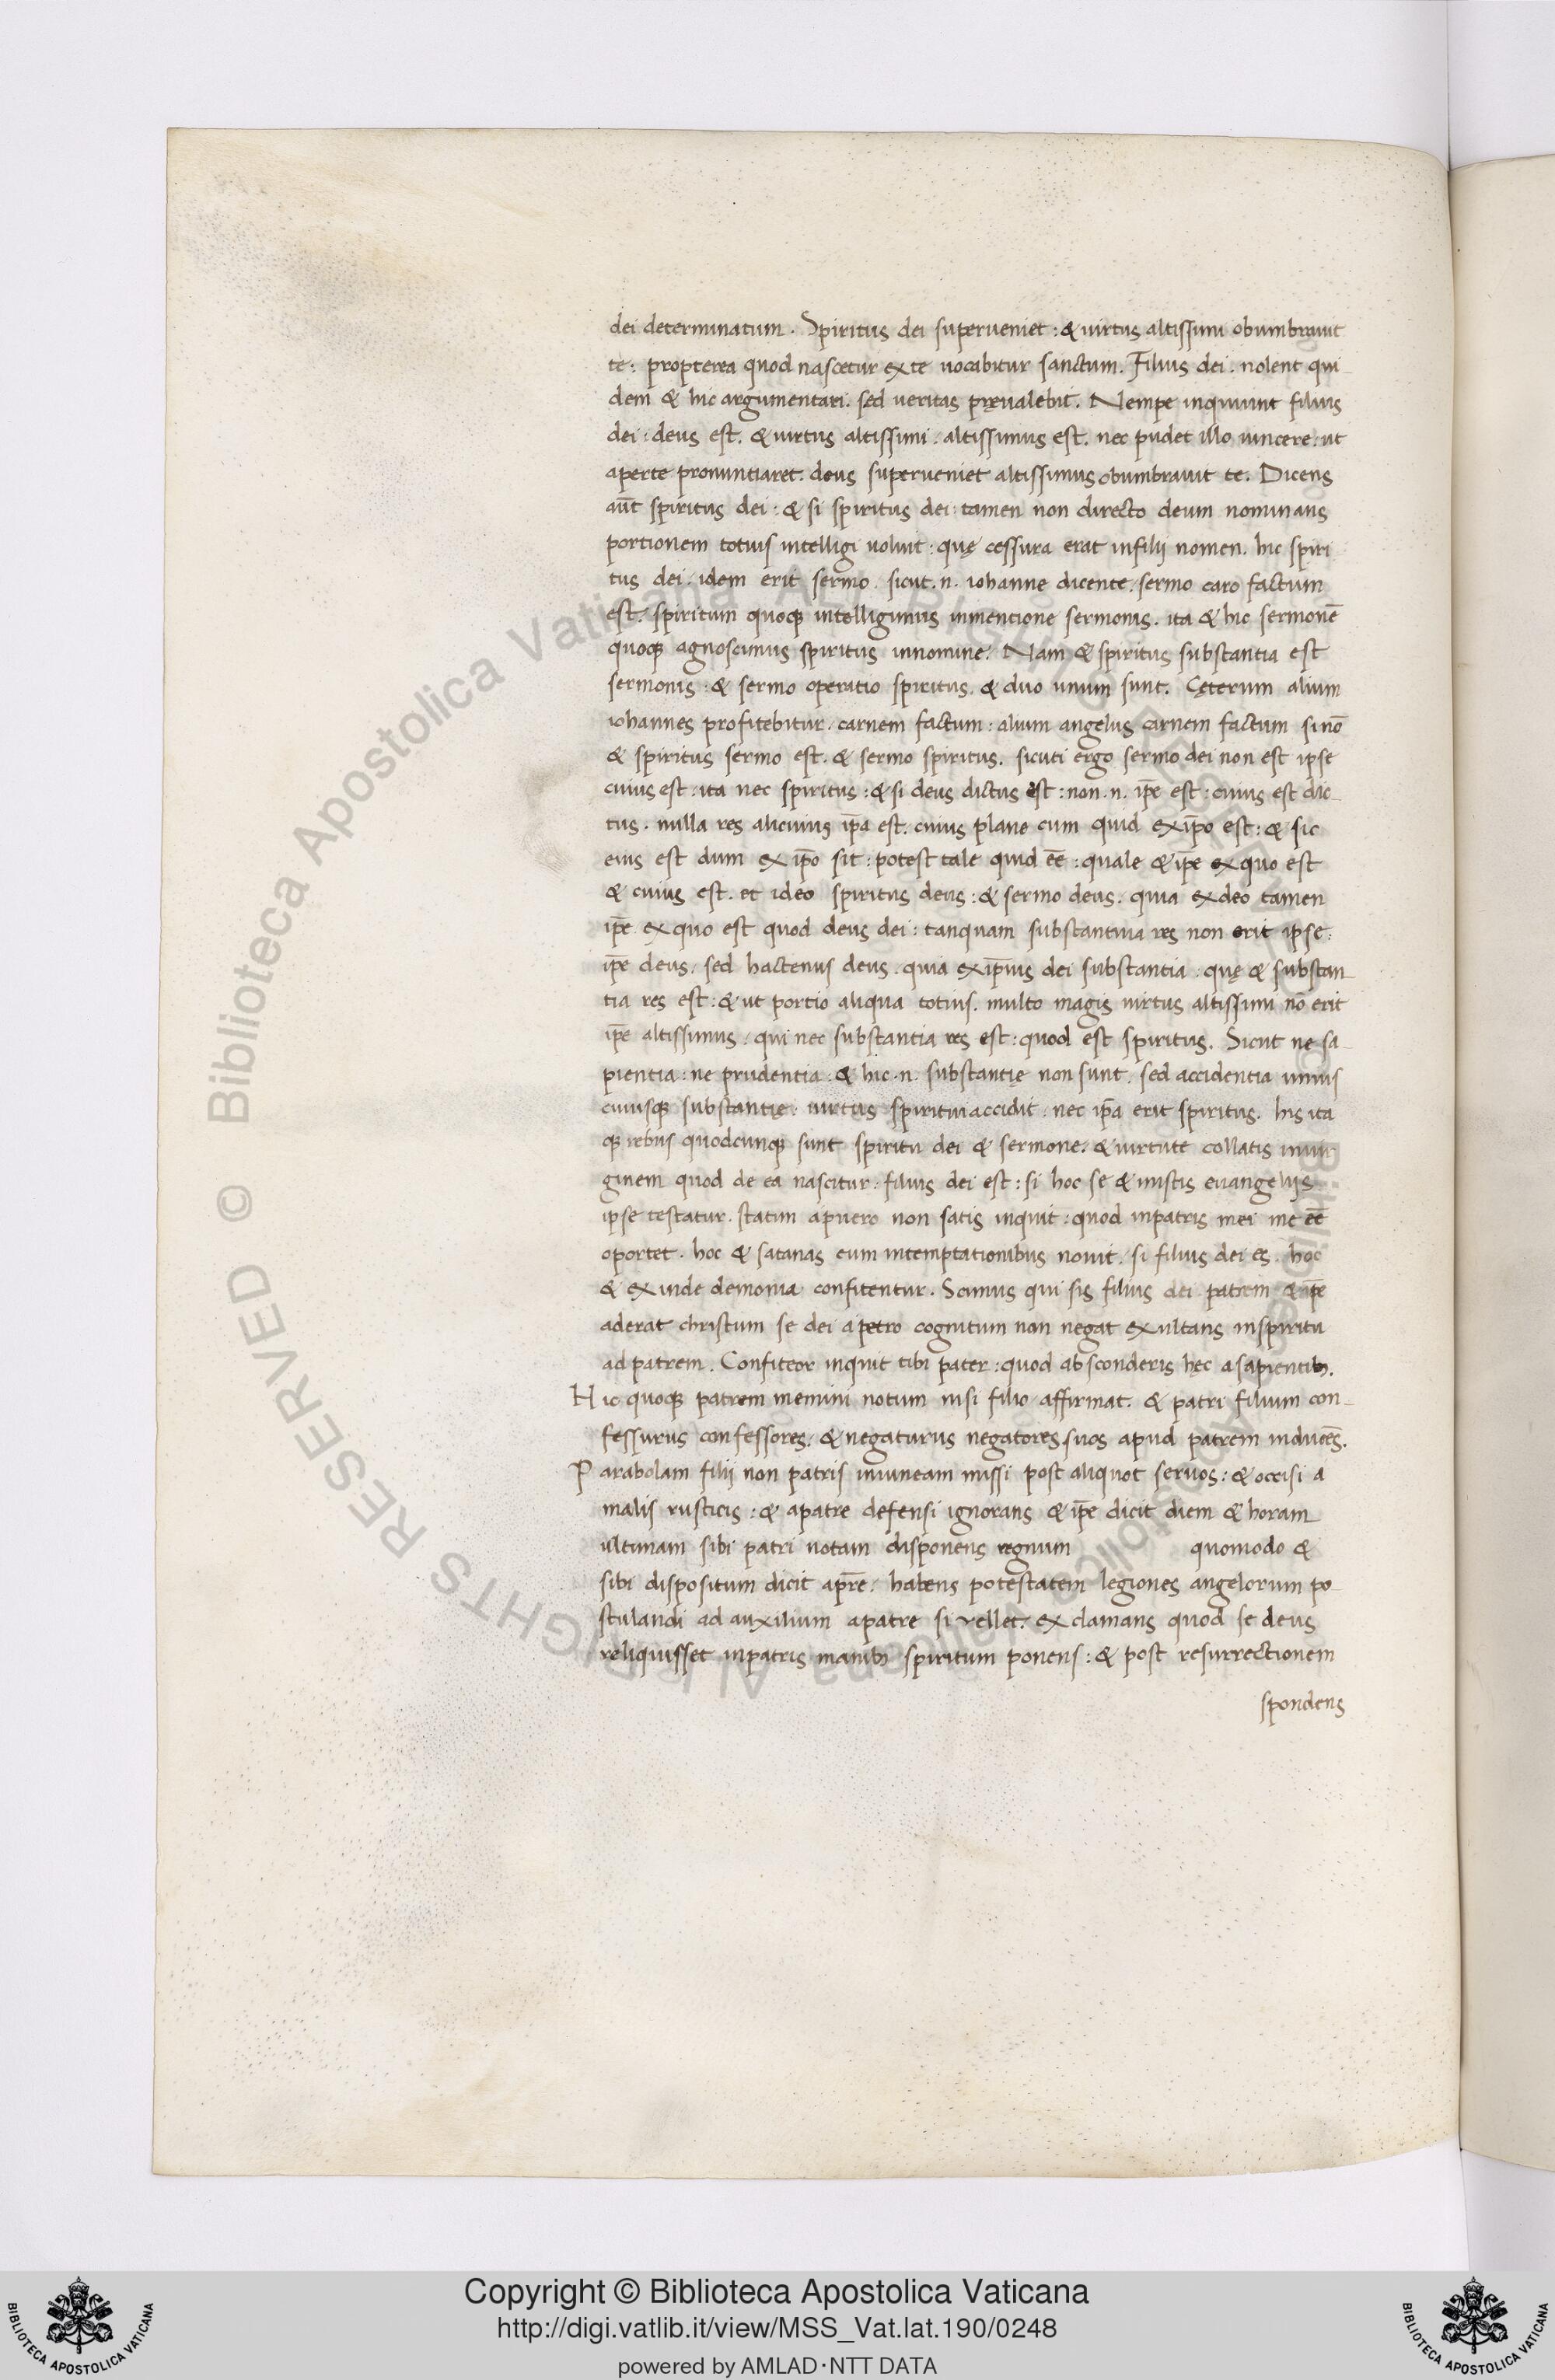 dei determinatum. Spiritus dei superueniet: & uirtus altissimi obumbrauit
te: propterea quod nascetur ex te uocabitur sanctum. Filius dei. nolent qui-
dem & hic argumentari. sed ueritas pręualebit. Nempe inquiunt filius
dei: deus est. & uirtus altissimi: altissimus est. nec pudet illo iuncere: ut
aperte pronuntiaret. deus superueniet altissimus obumbrauit te. Dicens
aūt spiritus dei: & si spiritus dei: tamen non directo deum nominans
portionem totius intelligi uoluit: quę cessura erat infilii nomen. hic spiri
tus dei. idem erit sermo. sicut .n. iohanne dicente. sermo caro factum
est. spiritum quoqꝫ intelligimus inmentione sermonis. ita & hic sermonē
quoqꝫ agnoscimus spiritus innomine. Nam & spiritus substantia est
sermonis: & sermo operatio spiritus. & duo unum sunt. Cęterum alium
iohannes profitebitur. carnem factum: alium angelus carnem factum si nō
& spiritus sermo est. & sermo spiritus. sicuti ergo sermo dei non est ipse
cuius est: ita nec spiritus: & si deus dictus est: non .n. ip̄e est: cuius est dic-
tus. nulla res alicuius ip̄a est. cuius plane cum quid exip̄o est: & sic
eius est dum ex ip̄o sit: potest tale quid eē: quale & ip̄e ex quo est
& cuius est. et ideo spiritus deus: & sermo deus. quia exdeo tamen
ip̄e ex quo est quod deus dei: tanquam substantiua res non erit ipse:
ip̄e deus. sed hactenus deus. quia exip̄ius dei substantia. quę & substan-
tia res est: & ut portio aliqua totius. multo magis uirtus altissimi nō erit
ip̄e altissimus: qui nec substantia res est: quod est spiritus. Sicut ne sa-
pientia: ne prudentia: & hic .n. substantię non sunt. sed accidentia unius
cuiusqꝫ substantię: uirtus spiritui accidit: nec ip̄a erit spiritus. his ita
qꝫ rebus quodcunqꝫ sunt spiritu dei & sermone. & uirtute collatis inuir
ginem quod de ea nascitur: filius dei est: si hoc se & inistis euangeliis
ipse testatur. statim apuero non satis inquit: quod inpatris mei me eē
oportet. hoc & satanas eum intemptationibus nouit. si filius dei es. hoc
& exinde demonia confitentur. Scimus qui sis filius dei patrem & ip̄e
aderat christum se dei apetro cognitum non negat exultans inspiritu
ad patrem. Confiteor inquit tibi pater: quod absconderis hęc asapientibꝫ.
Hic quoqꝫ patrem memini notum nisi filio affirmat. & patri filium con-
fessurus confessores. & negaturus negatores suos apud patrem inducēs.
Parabolam filii non patris inuineam missi post aliquot seruos: & occisi a
malis rusticis: & apatre defensi ignorans & ip̄e dicit diem & horam
ultimam sibi patri notam disponens regnum quomodo &
sibi dispositum dicit ap̄re. habens potestatem legiones angelorum po-
stulandi ad auxilium apatre si vellet. exclamans quod se deus
reliquisset inpatris manibꝫ spiritum ponens: & post resurrectionem
spondens
© Biblioteca Apostolica Vaticana
ALL RIGHTS RESERVED
Copyright © Biblioteca Apostolica Vaticana
http://digi.vatlib.it/view/MSS_Vat.lat.190/0248
powered by AMLAD·NTT DATA
BIBLIOTECA APOSTOLICA VATICANA
BIBLIOTECA APOSTOLICA VATICANA